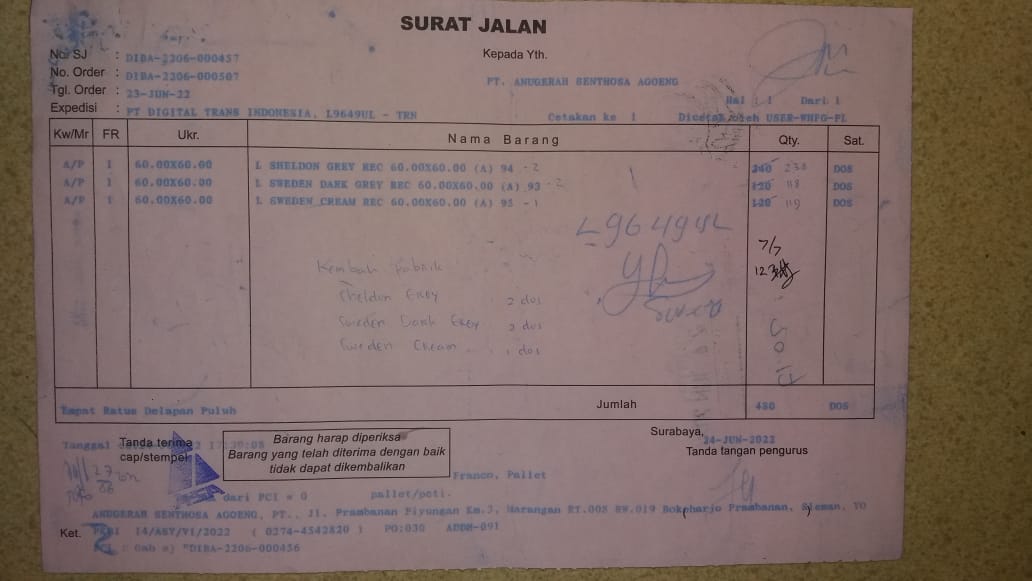 SURAT JALAN
No. SJ : DIBA-2206-000457
Kepada Yth.
No. Order : DIBA-2206-000507
PT. ANUGERAH SENTHOSA AGOENG
Tgl. Order : 23-JUN-22
Hal : 1 Dari 1
Expedisi : PT DIGITAL TRANS INDONESIA, L9649UL - TRN
Cetakan ke 1 Dicetak oleh USER-WHFG-PL
Kw/Mr FR Ukr. Nama Barang Qty. Sat.
A/P 1 60.00X60.00 L SHELDON GREY REC 60.00X60.00 (A) 94 -2 240 238 DOS
A/P 1 60.00X60.00 L SWEDEN DARK GREY REC 60.00X60.00 (A) 93 -2 120 118 DOS
A/P 1 60.00X60.00 L SWEDEN CREAM REC 60.00X60.00 (A) 95 -1 120 119 DOS
L9649UL
7/7
Kembali Pabrik
Sheldon Grey 2 dos
Sweden Dark Grey 2 dus
Sweden Cream 1 dos
Empat Ratus Delapan Puluh Jumlah 480 DOS
Tanggal
Tanda terima
cap/stempel
Barang harap diperiksa
Barang yang telah diterima dengan baik
tidak dapat dikembalikan
Surabaya, 24-JUN-2022
Tanda tangan pengurus
Franco, Pallet
dari PCI = 0 pallet/peti.
ANUGERAH SENTHOSA AGOENG, PT., Jl. Prambanan Piyungan Km.3, Marangan RT.005 RW.019 Bokoharjo Prambanan, Sleman, YO
Ket. 14/ASY/VI/2022 ( 0274-4542820 ) PO:030 ADDM-091
"DIBA-2206-000456